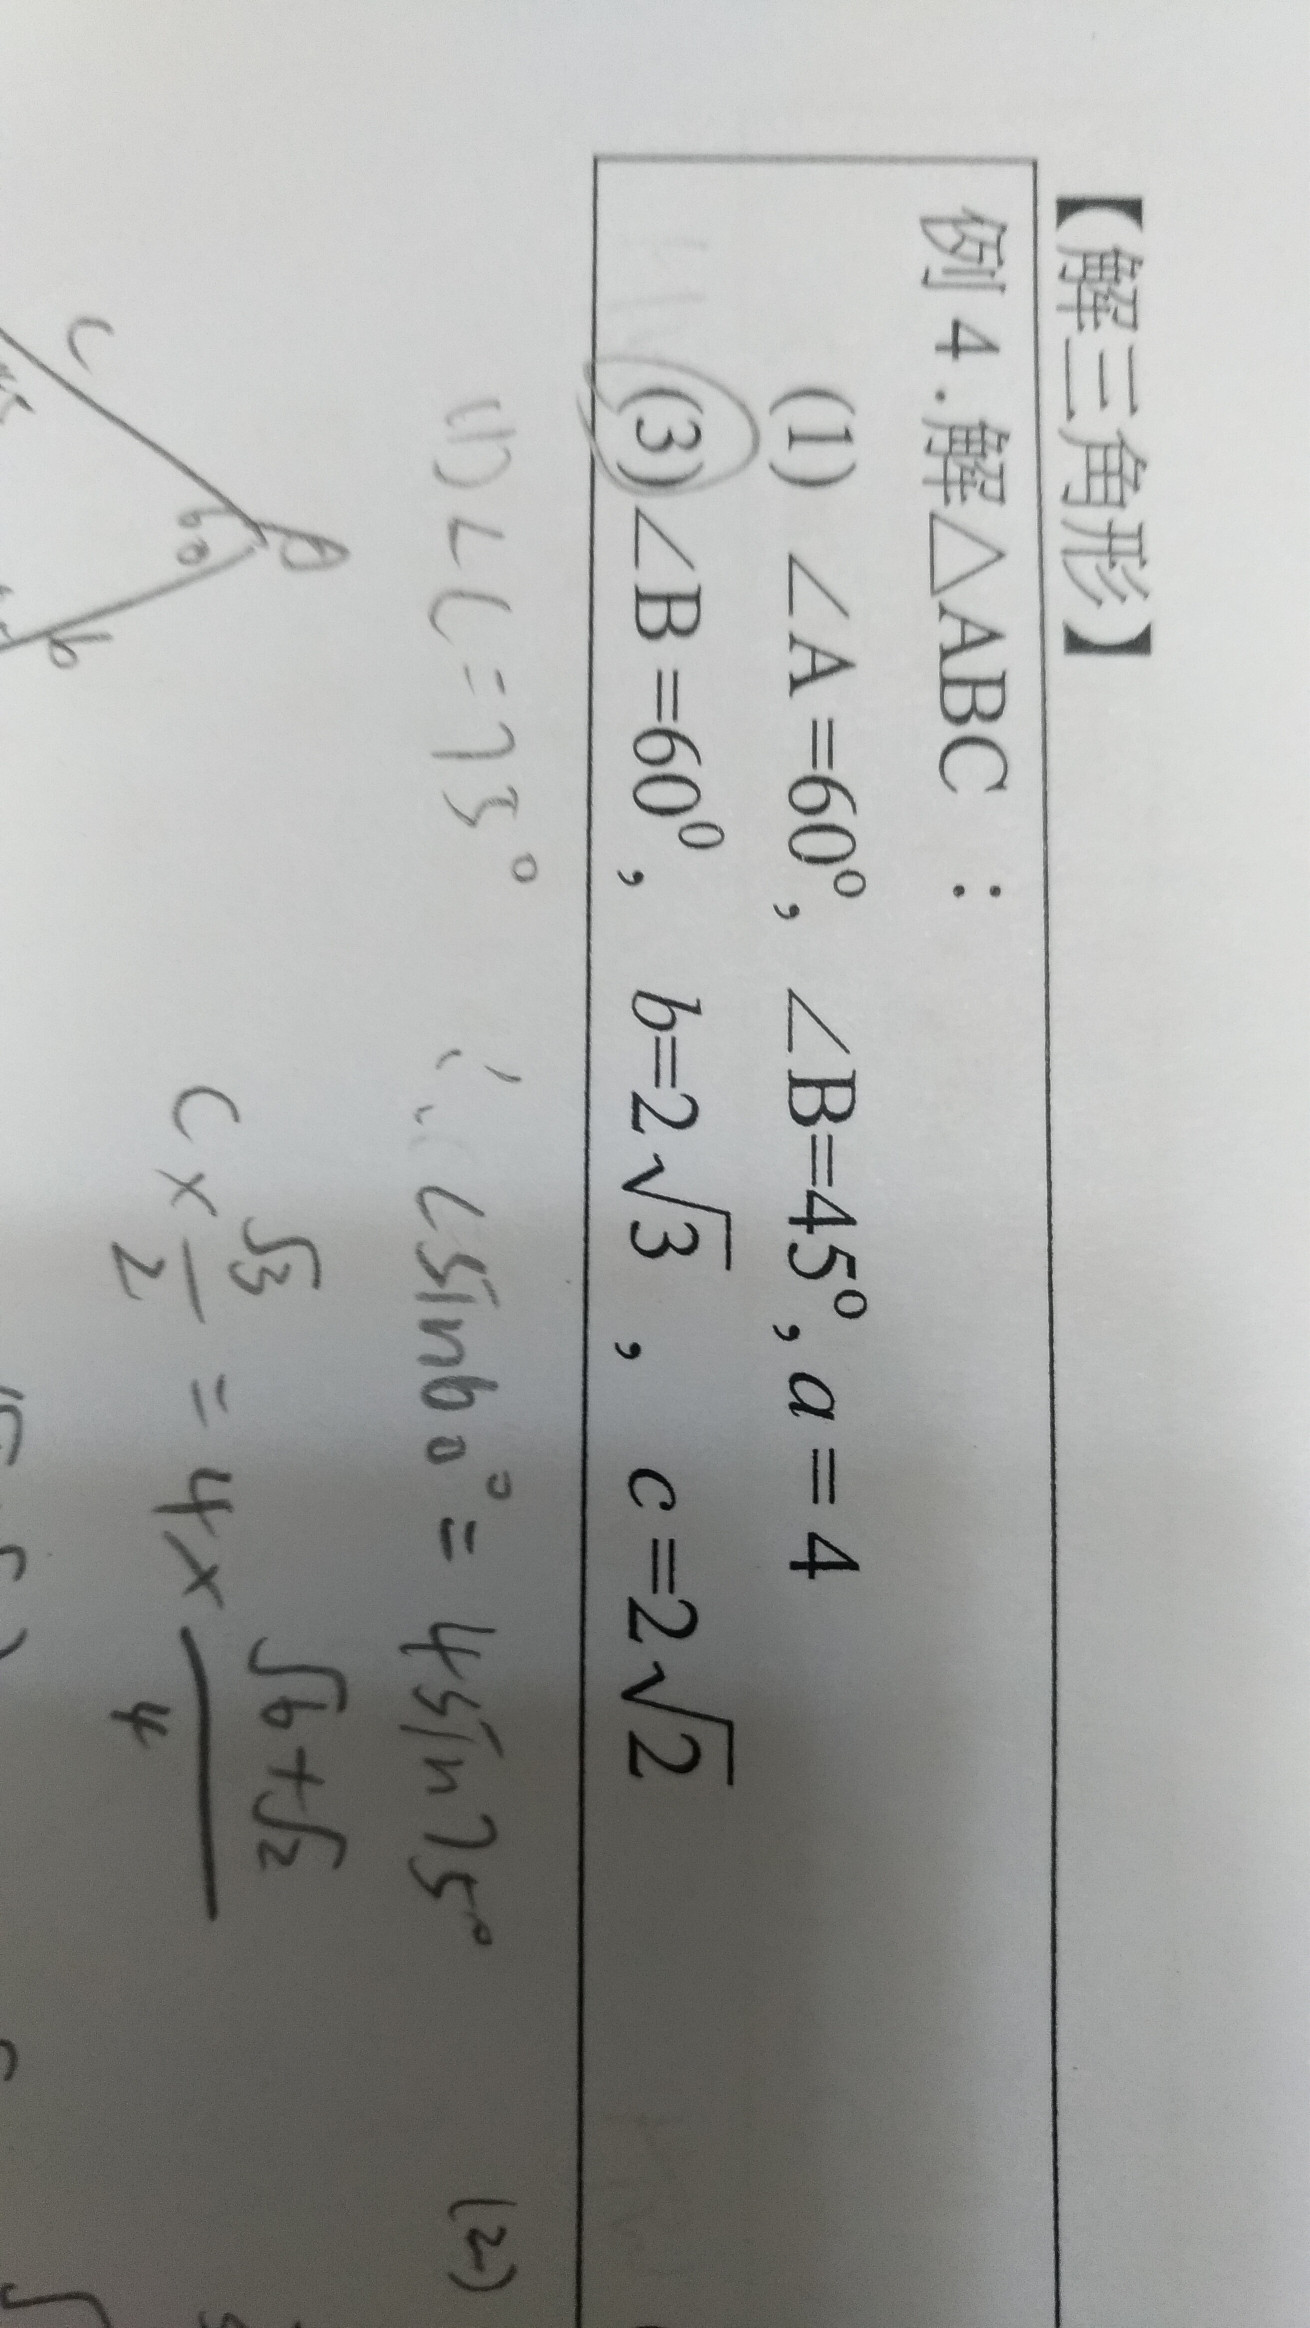 【解三角形】
例 4 . 解△ABC ：
(1) ∠A =60°, ∠B=45°, a = 4
(3) ∠B =60⁰, b=2√3 , c =2√2
(1) ∠C = 75° ∴ c sin60° = 4sin75° (2)
c × √3/2 = 4 × (√6+√2)/4
A
60
c
b